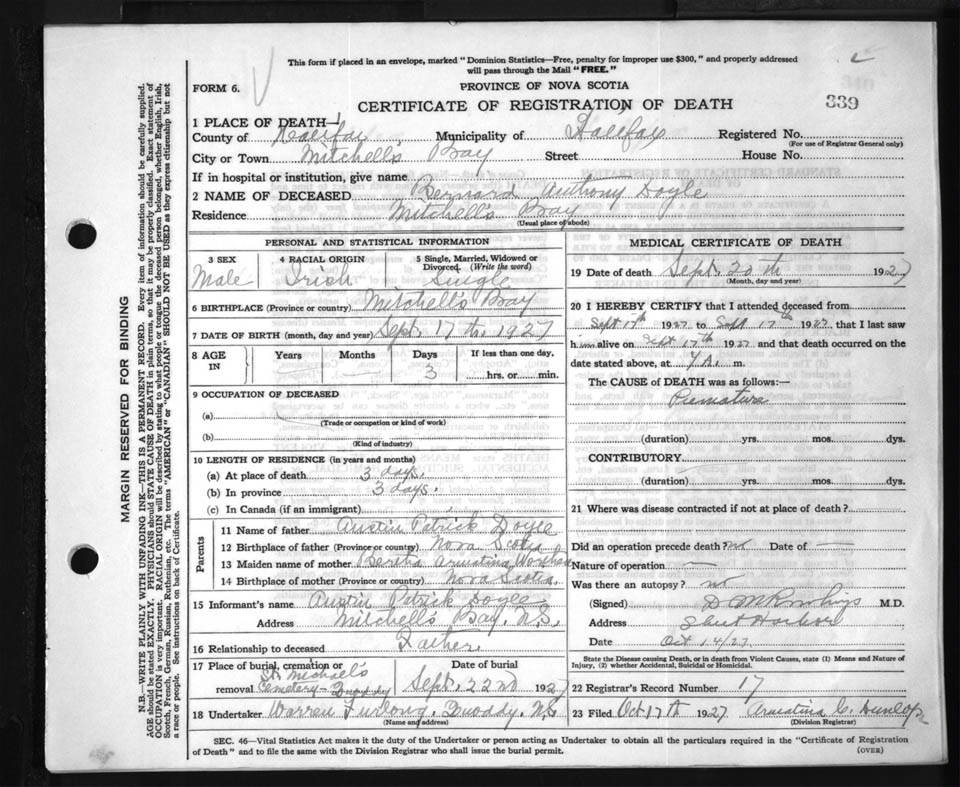 This form if placed in an envelope, marked "Dominion Statistics—Free, penalty for improper use $300," and properly addressed
will pass through the Mail "FREE."
FORM 6.
PROVINCE OF NOVA SCOTIA
CERTIFICATE OF REGISTRATION OF DEATH
339
1 PLACE OF DEATH—
County of Halifax Municipality of Halifax Registered No.
(For use of Registrar General only)
City or Town Mitchell's Bay Street House No.
If in hospital or institution, give name
2 NAME OF DECEASED Bernard Anthony Doyle
Residence Mitchell's Bay
(Usual place of abode)
PERSONAL AND STATISTICAL INFORMATION
3 SEX
Male
4 RACIAL ORIGIN
Irish
5 Single, Married, Widowed or
Divorced. (Write the word)
Single
6 BIRTHPLACE (Province or country) Mitchell's Bay
7 DATE OF BIRTH (month, day and year) Sept. 17th. 1927
8 AGE IN
Years Months Days If less than one day,
3 hrs. or min.
9 OCCUPATION OF DECEASED
(a)
(Trade or occupation or kind of work)
(b)
(Kind of industry)
10 LENGTH OF RESIDENCE (in years and months)
(a) At place of death 3 days.
(b) In province 3 days.
(c) In Canada (if an immigrant)
Parents
11 Name of father Austin Patrick Doyle
12 Birthplace of father (Province or country) Nova Scotia
13 Maiden name of mother Bertha Armatina
14 Birthplace of mother (Province or country) Nova Scotia.
15 Informant's name Austin Patrick Doyle
Address Mitchell's Bay, N.S.
16 Relationship to deceased Father
17 Place of burial, cremation or
removal St. Michael's
Cemetery - Quoddy
Date of burial
Sept. 22nd 1927
18 Undertaker Warren Furlong, Quoddy. N.S.
(Name and address)
MEDICAL CERTIFICATE OF DEATH
19 Date of death Sept. 20th 1927
(Month, day and year)
20 I HEREBY CERTIFY that I attended deceased from
Sept 17th 1927 to Sept 17th 1927 that I last saw
h alive on Sept 17th 1927 and that death occurred on the
date stated above, at m.
The CAUSE of DEATH was as follows:—
Premature
(duration) yrs. mos. dys.
CONTRIBUTORY
(duration) yrs. mos. dys.
21 Where was disease contracted if not at place of death?
Did an operation precede death? no Date of —
Nature of operation —
Was there an autopsy? no
(Signed) M.D.
Address Sheet Harbour
Date Oct 14/27
State the Disease causing Death, or in death from Violent Causes, state (1) Means and Nature of
Injury, (2) whether Accidental, Suicidal or Homicidal.
22 Registrar's Record Number 17
23 Filed Oct 17th 1927 Armatina C. Dunlop
(Division Registrar)
SEC. 46—Vital Statistics Act makes it the duty of the Undertaker or person acting as Undertaker to obtain all the particulars required in the "Certificate of Registration
of Death" and to file the same with the Division Registrar who shall issue the burial permit.
(OVER)
MARGIN RESERVED FOR BINDING
N.B.—WRITE PLAINLY WITH UNFADING INK—THIS IS A PERMANENT RECORD. Every item of information should be carefully supplied.
AGE should be stated EXACTLY. PHYSICIANS should STATE CAUSE OF DEATH in plain terms, so that it may be properly classified. Exact statement of
OCCUPATION is very important. RACIAL ORIGIN will be described by stating to what people or tongue the deceased person belonged, whether English, Irish,
Scotch, French, German, Russian, Ruthenian, etc. The terms "AMERICAN" or "CANADIAN" SHOULD NOT BE USED as they express citizenship but not
a race or people. See instructions on back of Certificate.